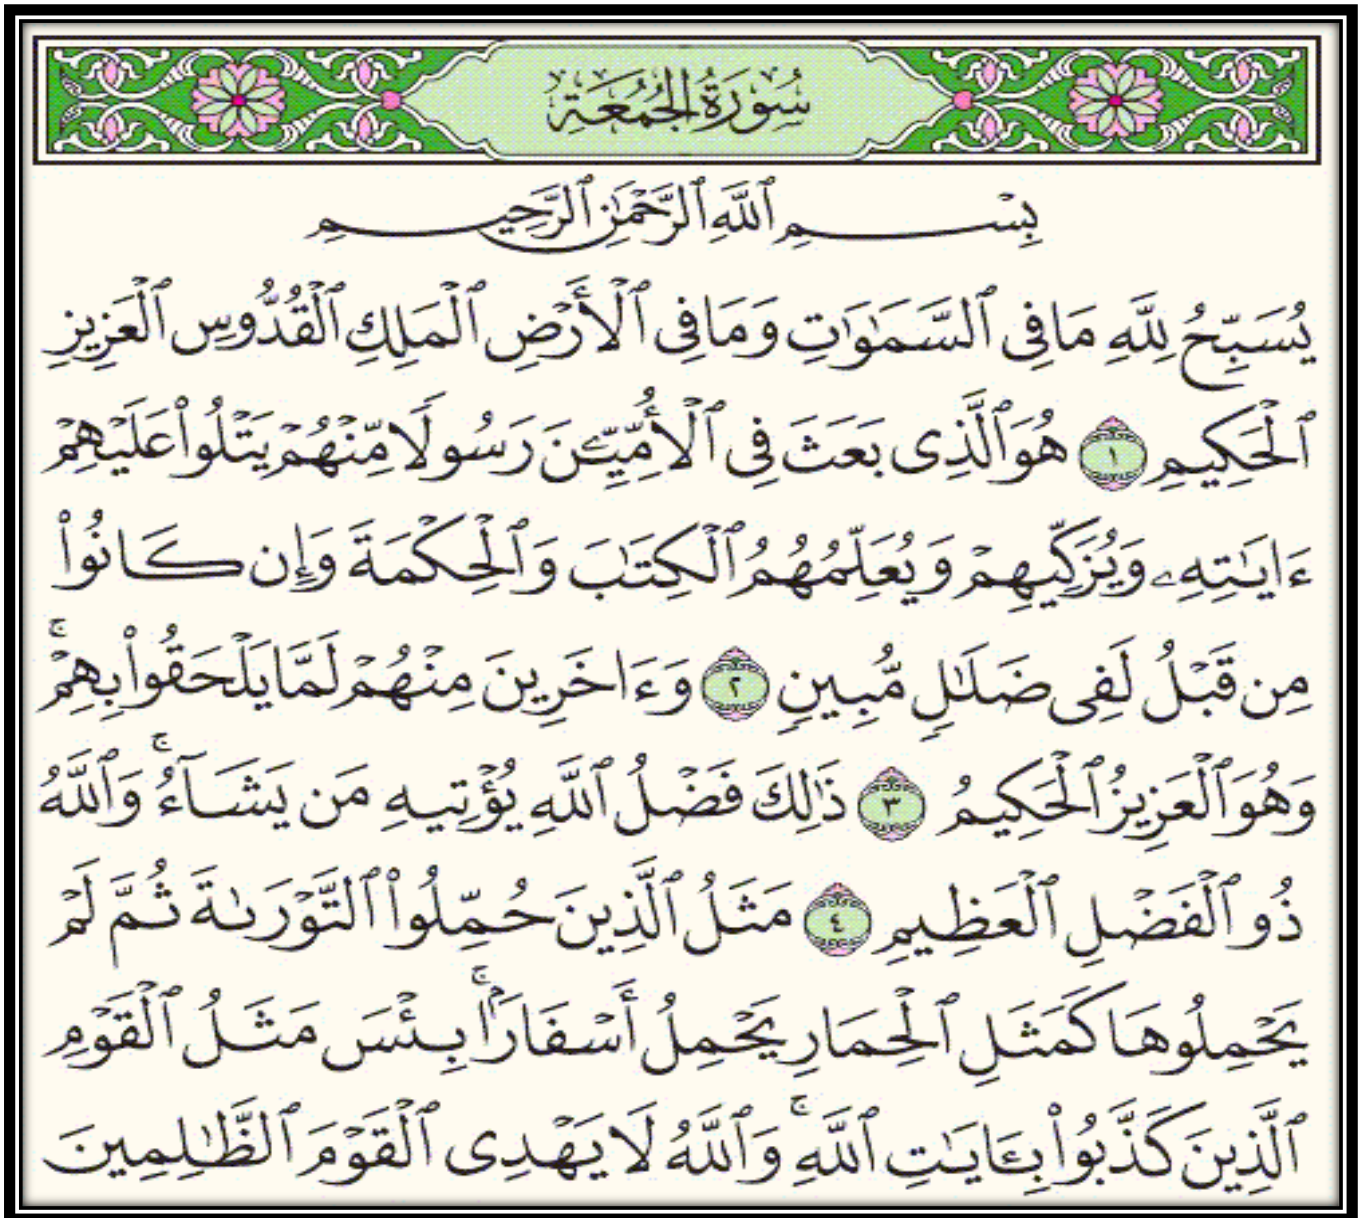 سُورَةُ الجُمُعَةِ
بِسْمِ ٱللَّهِ ٱلرَّحْمَٰنِ ٱلرَّحِيمِ
يُسَبِّحُ لِلَّهِ مَا فِى ٱلسَّمَٰوَٰتِ وَمَا فِى ٱلْأَرْضِ ٱلْمَلِكِ ٱلْقُدُّوسِ ٱلْعَزِيزِ
ٱلْحَكِيمِ ١ هُوَ ٱلَّذِى بَعَثَ فِى ٱلْأُمِّيِّـۧنَ رَسُولًا مِّنْهُمْ يَتْلُوا۟ عَلَيْهِمْ
ءَايَٰتِهِۦ وَيُزَكِّيهِمْ وَيُعَلِّمُهُمُ ٱلْكِتَٰبَ وَٱلْحِكْمَةَ وَإِن كَانُوا۟
مِن قَبْلُ لَفِى ضَلَٰلٍ مُّبِينٍ ٢ وَءَاخَرِينَ مِنْهُمْ لَمَّا يَلْحَقُوا۟ بِهِمْ ۚ
وَهُوَ ٱلْعَزِيزُ ٱلْحَكِيمُ ٣ ذَٰلِكَ فَضْلُ ٱللَّهِ يُؤْتِيهِ مَن يَشَآءُ ۚ وَٱللَّهُ
ذُو ٱلْفَضْلِ ٱلْعَظِيمِ ٤ مَثَلُ ٱلَّذِينَ حُمِّلُوا۟ ٱلتَّوْرَىٰةَ ثُمَّ لَمْ
يَحْمِلُوهَا كَمَثَلِ ٱلْحِمَارِ يَحْمِلُ أَسْفَارًۢا ۚ بِئْسَ مَثَلُ ٱلْقَوْمِ
ٱلَّذِينَ كَذَّبُوا۟ بِـَٔايَٰتِ ٱللَّهِ ۚ وَٱللَّهُ لَا يَهْدِى ٱلْقَوْمَ ٱلظَّٰلِمِينَ